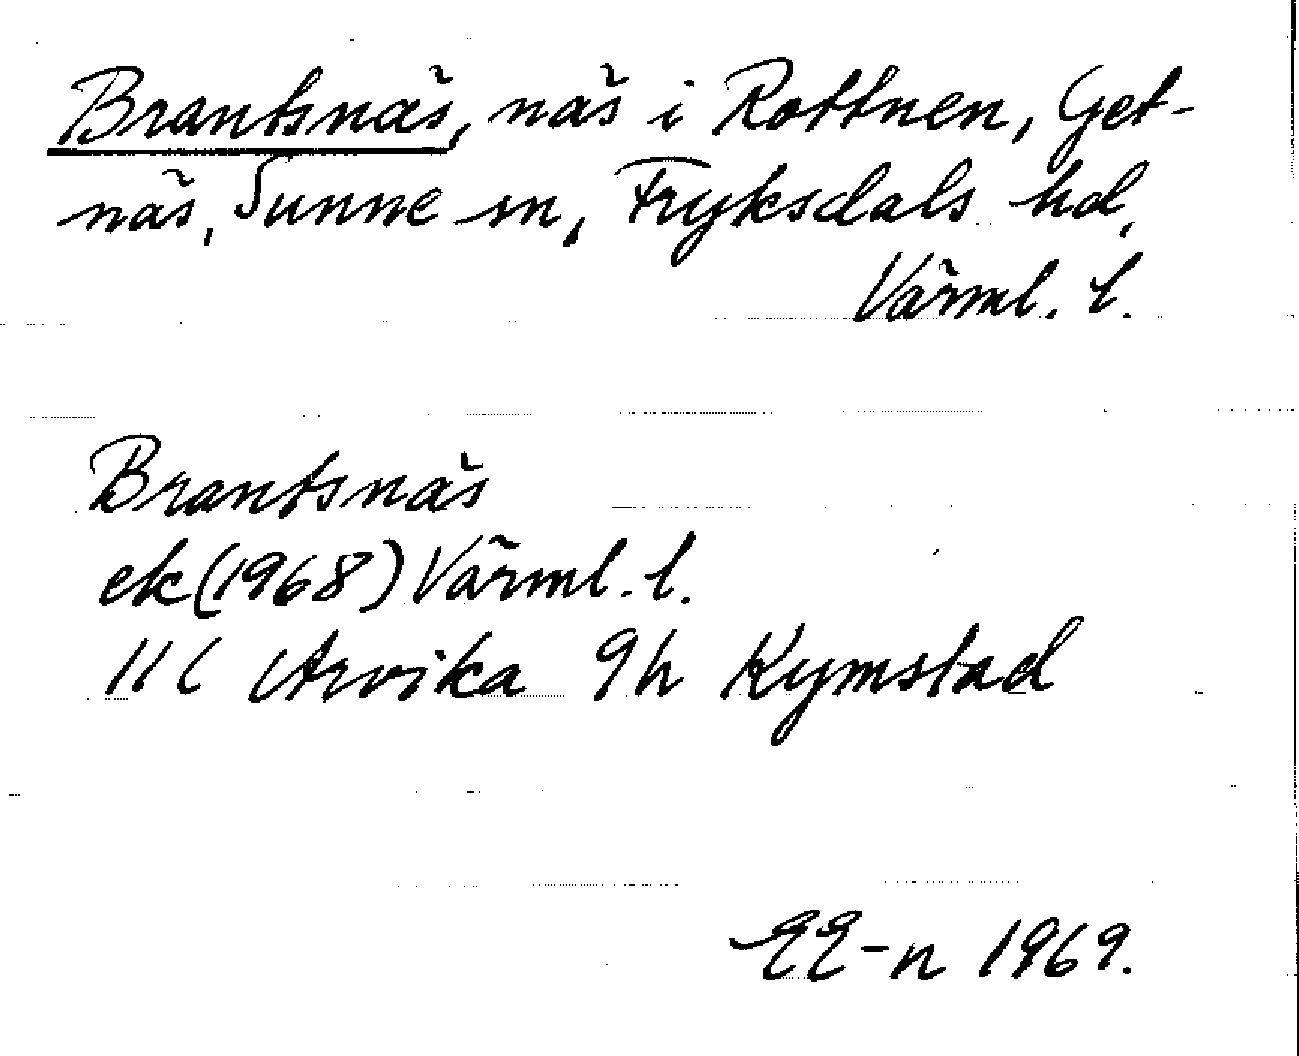 Brantsnäs, näs i Rottnen, Get-
näs, Sunne sn, Fryksdals hd,
Värml. l.
Brantsnäs
ek (1968) Värml. l.
11C Arvika 9h Kymstad
EE-n 1969.